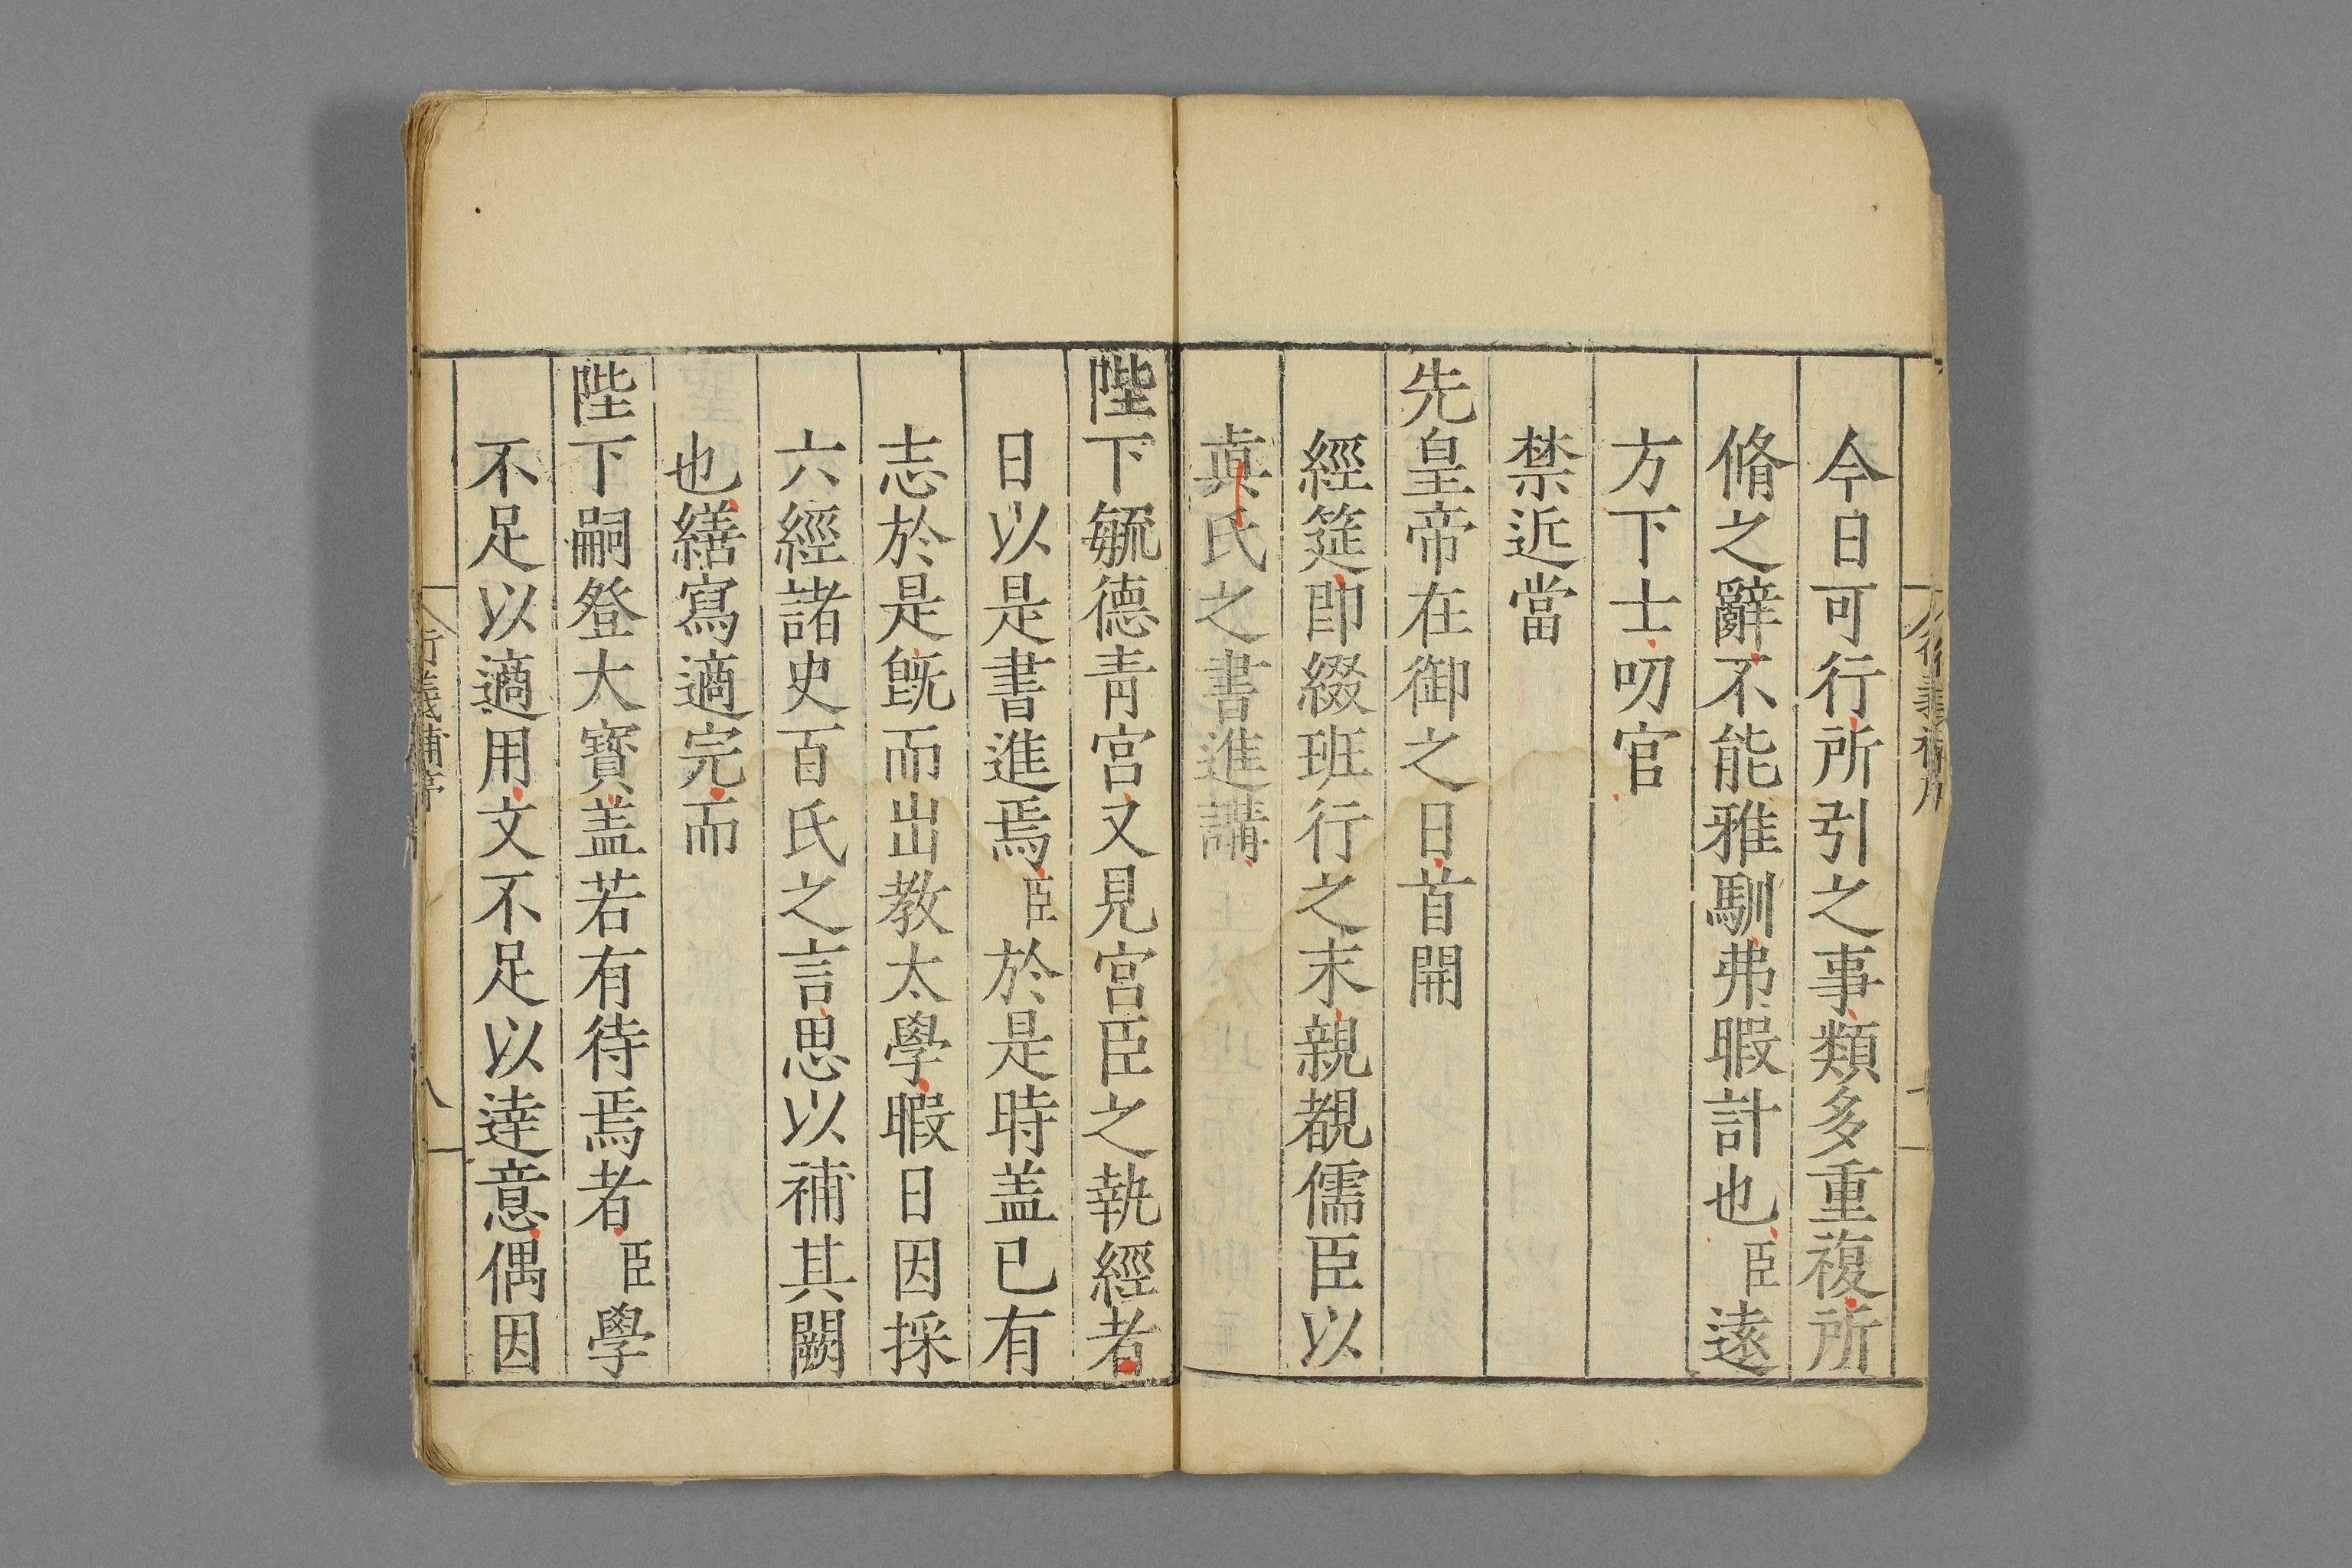 今日可行所引之事類多重複所
脩之辭不能雅馴弗暇計也臣遠
方下士叨官
禁近當
先皇帝在御之日首開
經筵即綴班行之末親覩儒臣以
真氏之書進講
陛下毓德青宮又見宮臣之執經者
日以是書進焉臣於是時盖已有
志於是旣而出教太學暇日因採
六經諸史百氏之言思以補其闕
也繕寫適完而
陛下嗣登大寶盖若有待焉者臣學
不足以適用文不足以達意偶因